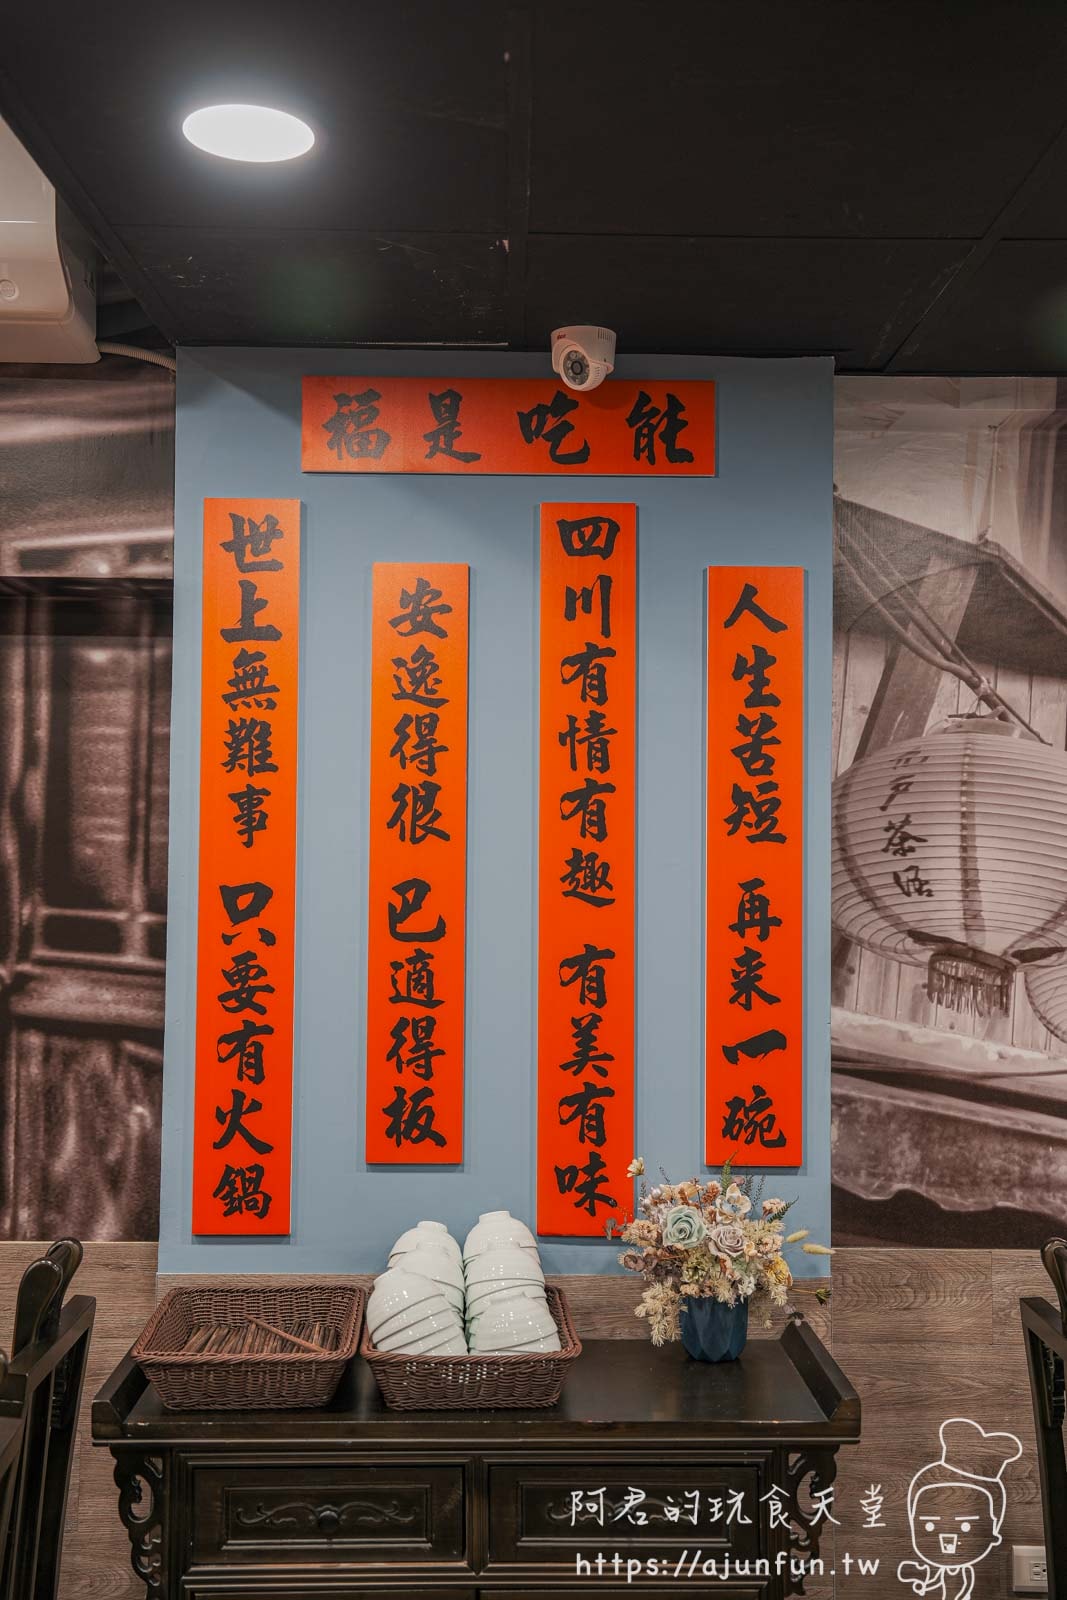 能吃是福
人生苦短 再来一碗
四川有情有趣 有美有味
安逸得很 巴適得板
世上無難事 只要有火鍋
阿君的玩食天堂
https://ajunfun.tw